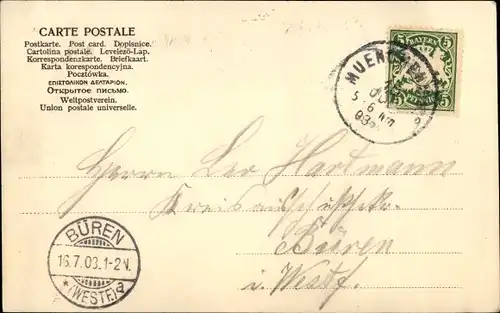 CARTE POSTALE
Postkarte. Post card. Dopisnice.
Cartolina postale. Levelező-Lap.
Korrespondenzkarte. Briefkaart.
Karta korespondencyjna.
Pocztówka.
ΕΠΙΣΤΟΛΙΚΟΝ ΔΕΛΤΑΡΙΟΝ.
Открытое письмо.
Weltpostverein.
Union postale universelle.
5 BAYERN 5
5 PFENNIG 5
MUEN
5-6
03
Herrn Leo Hartmann
Büren
i. Westf.
BÜREN
16.7.03.1-2N.
* (WESTF.) a